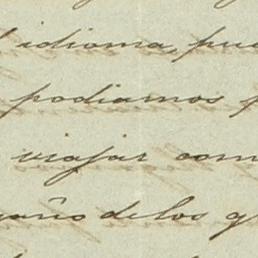 idioma, pue
podiamos
viajar com
año de los q